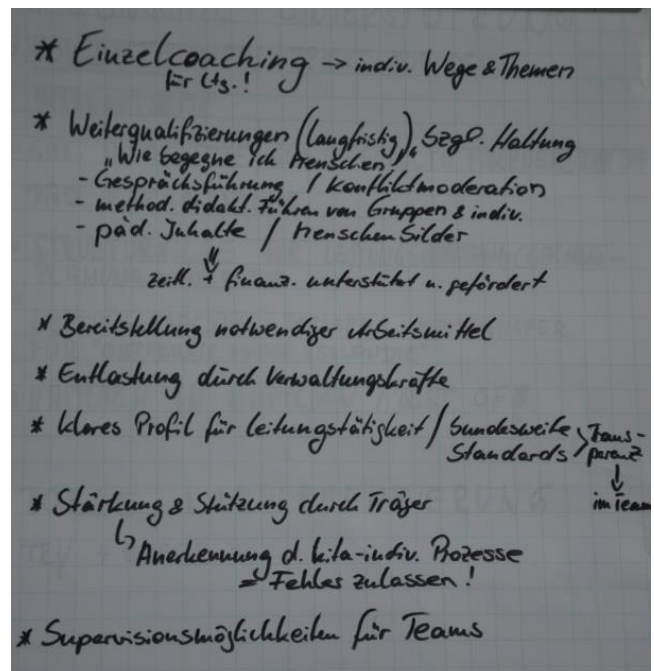 * Einzelcoaching → indiv. Wege & Themen
für Ltg.!
* Weiterqualifizierungen (langfristig) bzgl. Haltung
„Wie begegne ich Menschen"
- Gesprächsführung / Konfliktmoderation
- method. didakt. Führen von Gruppen & indiv.
- päd. Inhalte / Menschenbilder
⇓
zeitl. + finanz. unterstützt u. gefördert
* Bereitstellung notwendiger Arbeitsmittel
* Entlastung durch Verwaltungskräfte
* klares Profil für Leitungstätigkeit / bundesweite Standards > Transparenz
↓
im Team
* Stärkung & Stützung durch Träger
↳ Anerkennung d. kita-indiv. Prozesse
= Fehler zulassen!
* Supervisionsmöglichkeiten für Teams